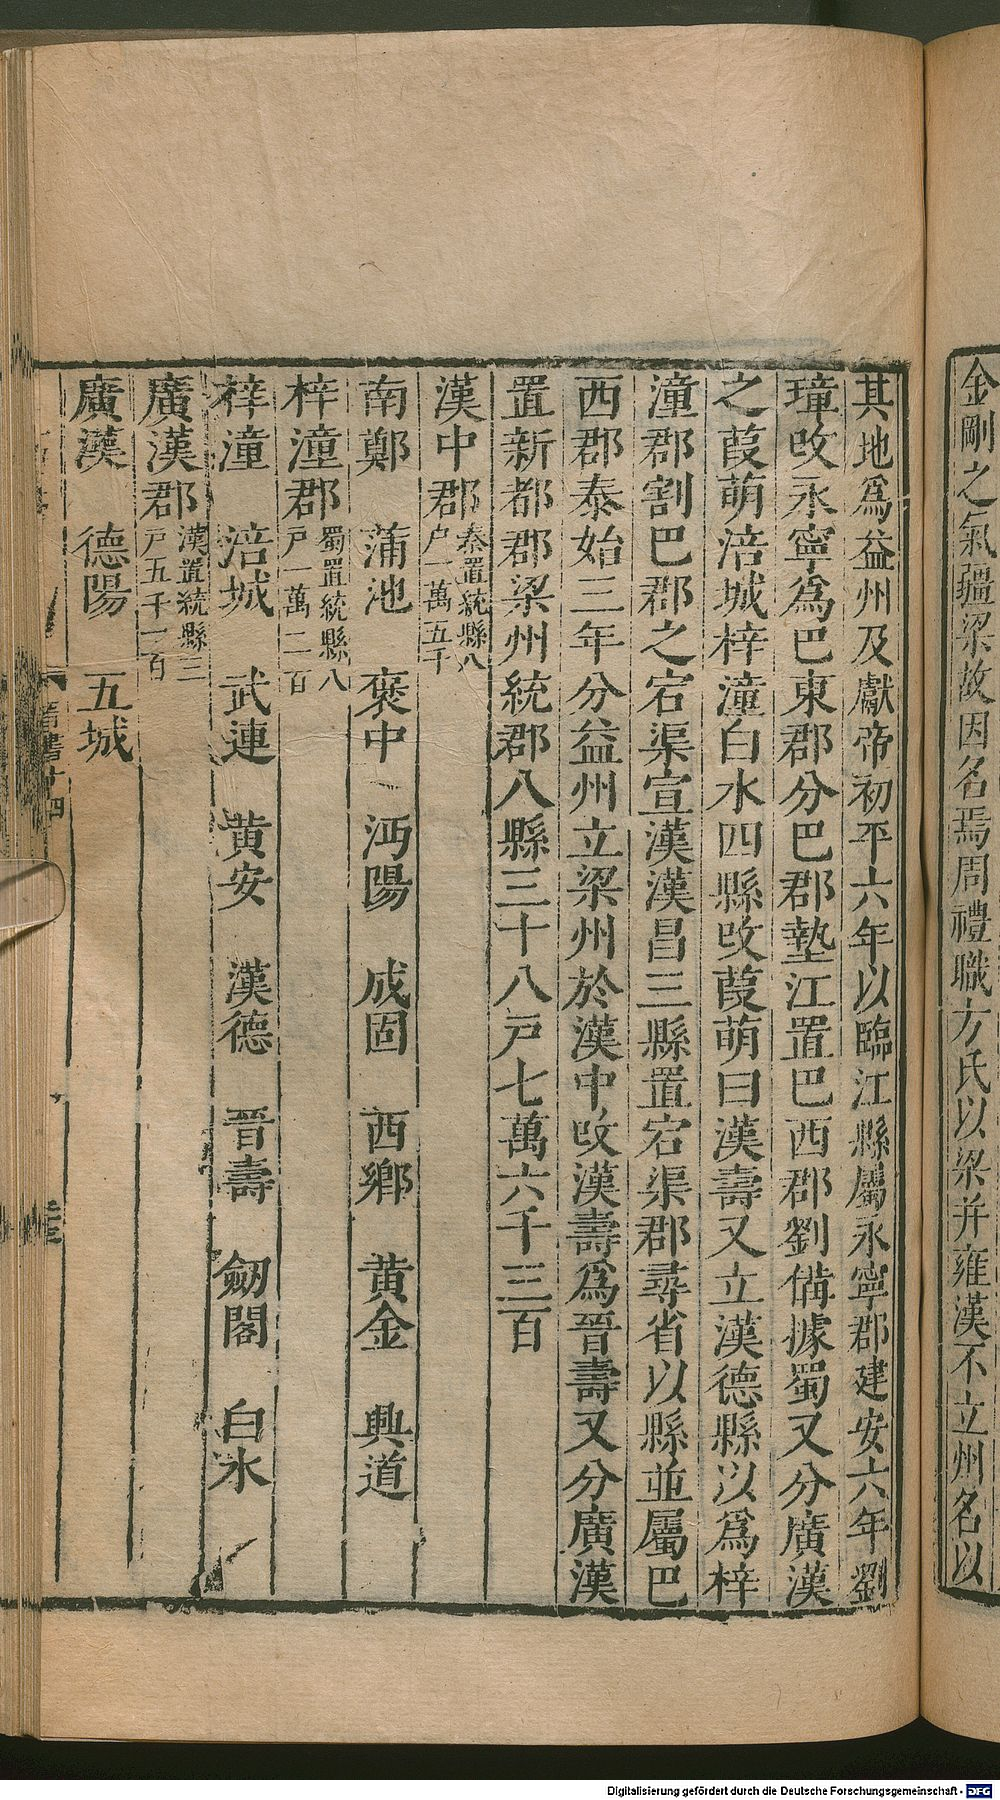 金剛之氣疆梁故因名焉周禮職方氏以梁并雍漢不立州名以
其地爲益州及獻帝初平六年以臨江縣屬永寧郡建安六年劉
璋攺永寧爲巴東郡分巴郡墊江置巴西郡劉備據蜀又分廣漢
之葭萌涪城梓潼白水四縣攺葭萌曰漢壽又立漢德縣以爲梓
潼郡割巴郡之宕渠宣漢漢昌三縣置宕渠郡尋省以縣並屬巴
西郡泰始三年分益州立梁州於漢中攺漢壽爲晉壽又分廣漢
置新都郡梁州統郡八縣三十八戸七萬六千三百
漢中郡秦置統縣八戸一萬五千
南鄭　蒲池　褒中　沔陽　成固　西鄉　黄金　興道
梓潼郡蜀置統縣八戸一萬二百
梓潼　涪城　武連　黄安　漢德　晉壽　劔閣　白水
廣漢郡漢置統縣三戸五千一百
廣漢　德陽　五城
晋書十四
Digitalisierung gefördert durch die Deutsche Forschungsgemeinschaft - DFG